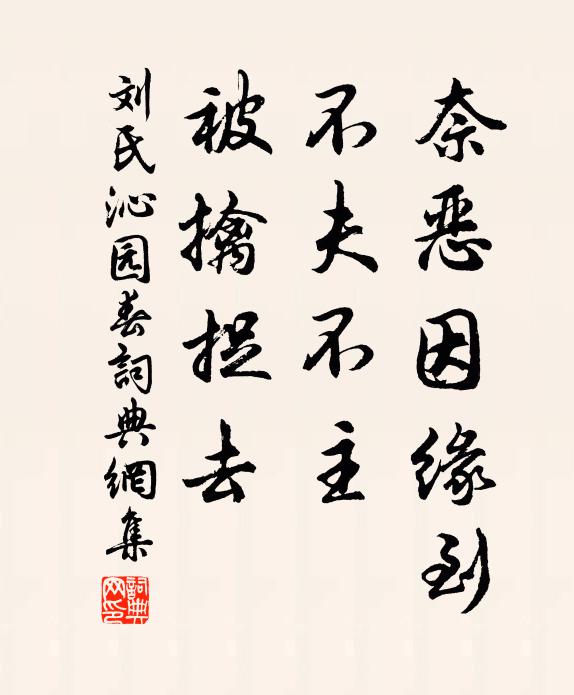 奈恶因缘到
不夫不主
被擒捉去
刘氏沁园春詞典網集
詞典
网印